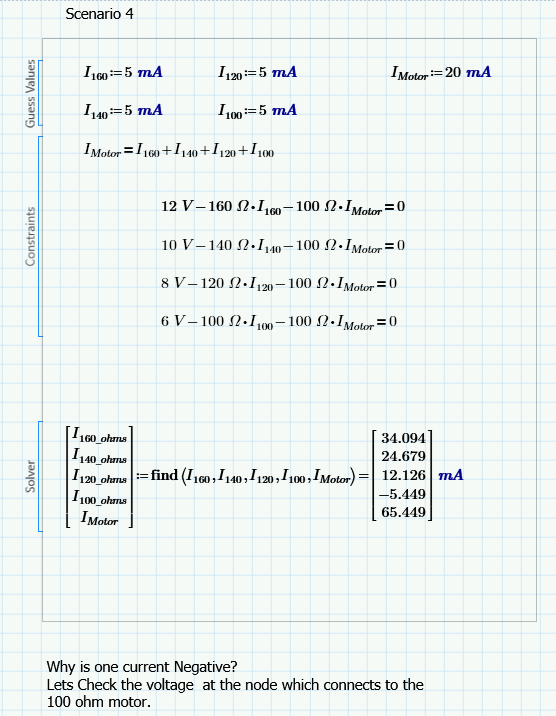 Scenario 4
Guess Values
I160:=5 mA I120:=5 mA IMotor:=20 mA
I140:=5 mA I100:=5 mA
Constraints
IMotor=I160+I140+I120+I100
12 V−160 Ω·I160−100 Ω·IMotor=0
10 V−140 Ω·I140−100 Ω·IMotor=0
8 V−120 Ω·I120−100 Ω·IMotor=0
6 V−100 Ω·I100−100 Ω·IMotor=0
Solver
I160_ohms
I140_ohms
I120_ohms
I100_ohms
IMotor
:=find(I160,I140,I120,I100,IMotor)=
34.094
24.679
12.126
−5.449
65.449
mA
Why is one current Negative?
Lets Check the voltage at the node which connects to the
100 ohm motor.